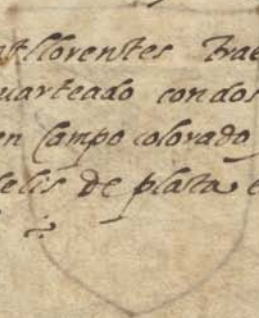 stllorentes trae
uarteado con dos
en Campo colorado
felis de plata e